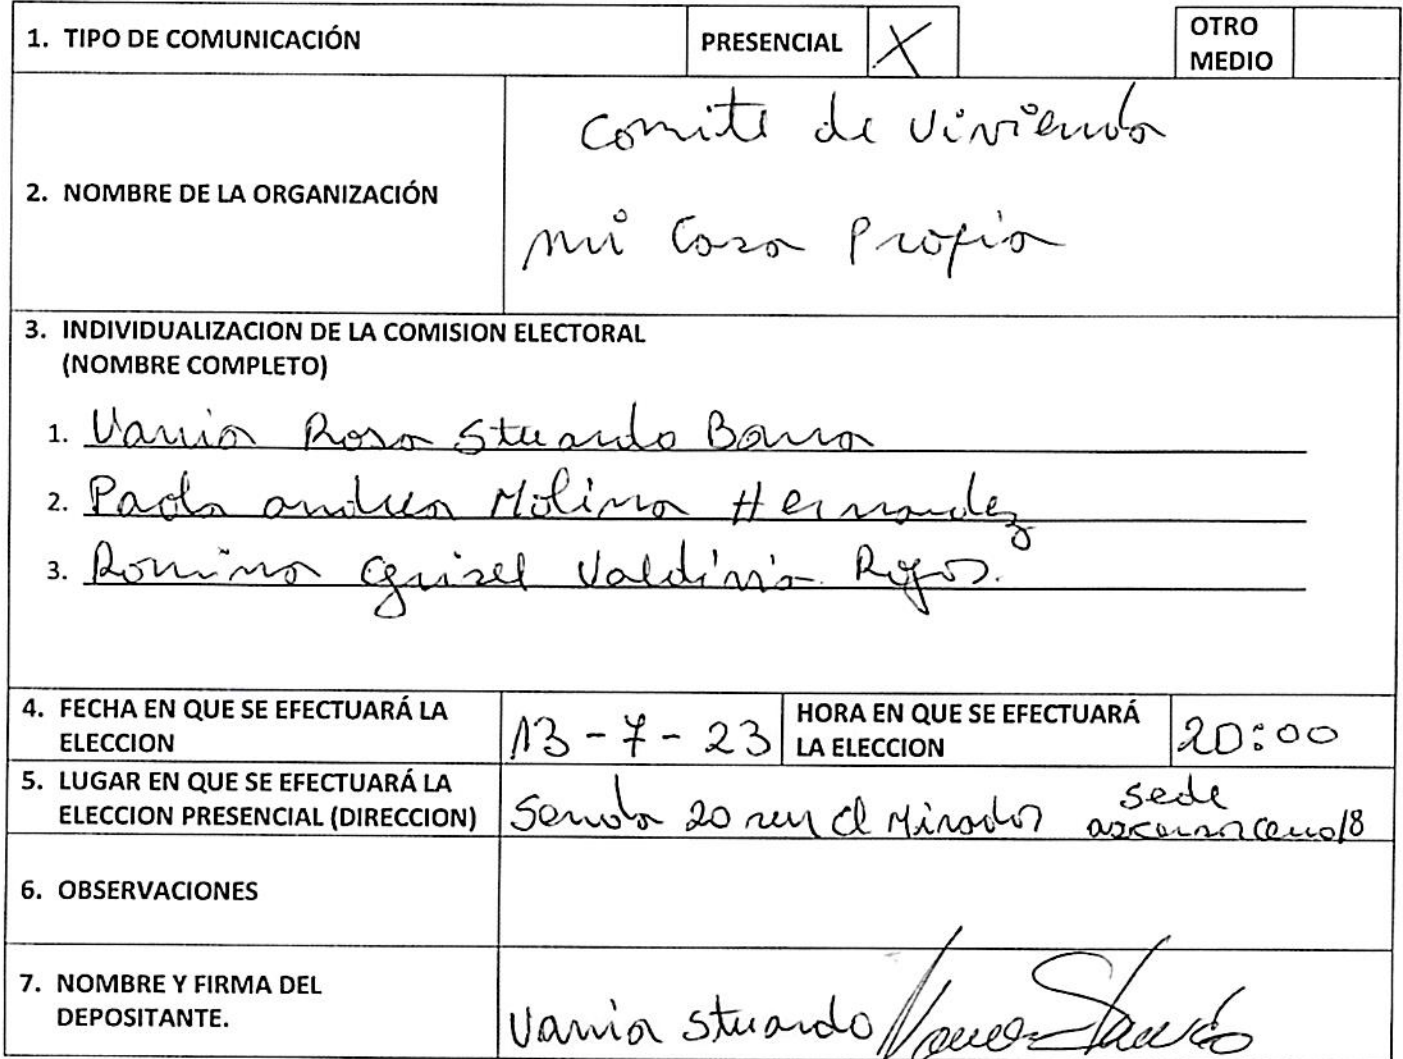 1. TIPO DE COMUNICACIÓN PRESENCIAL X OTRO MEDIO
2. NOMBRE DE LA ORGANIZACIÓN
Comite de Vivienda
mi Casa Propia
3. INDIVIDUALIZACION DE LA COMISION ELECTORAL
(NOMBRE COMPLETO)
1. Vania Rosa Stuardo Barra
2. Paola andrea Molina Hernandez
3. Romina Guisel Valdivia Rojas.
4. FECHA EN QUE SE EFECTUARÁ LA
ELECCION
13-7-23
HORA EN QUE SE EFECTUARÁ
LA ELECCION
20:00
5. LUGAR EN QUE SE EFECTUARÁ LA
ELECCION PRESENCIAL (DIRECCION)
Senda 20 el Mirador sede
18
6. OBSERVACIONES
7. NOMBRE Y FIRMA DEL
DEPOSITANTE.
Vania Stuardo